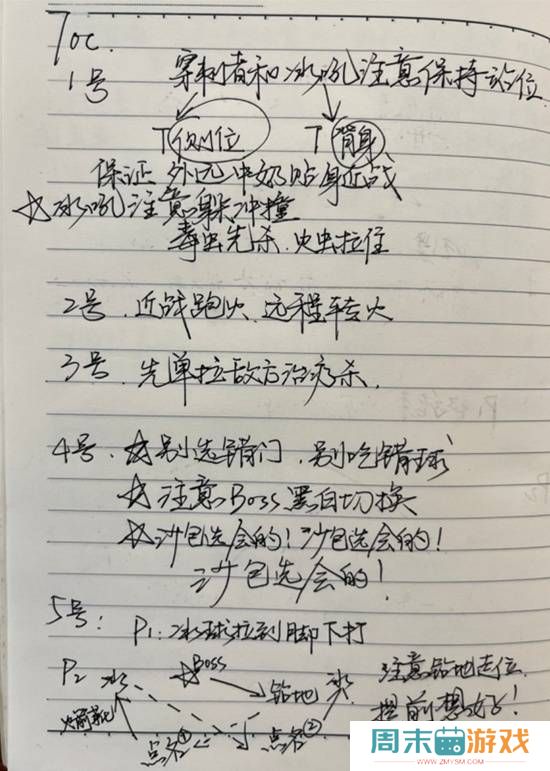 Toc.
1号 穿刺者和冰吼注意保持站位
T侧位 T背身
保证 外凸中奶贴身近战
☆冰吼注意躲冲撞
毒虫先杀.火虫拉住
2号.近战跑火、远程转火
3号.先单拉敌方治疗杀.
4号.☆别选错门.别吃错球
☆注意Boss黑白切换
☆沙包选会的!沙包选会的!
沙包选会的!
5号: P1:冰球拉到脚下打
P2 冰 ☆Boss 冰 注意钻地走位
钻地 提前想好!
火箭靴 点名① 点名②
周末游戏
WWW.ZMYSM.COM